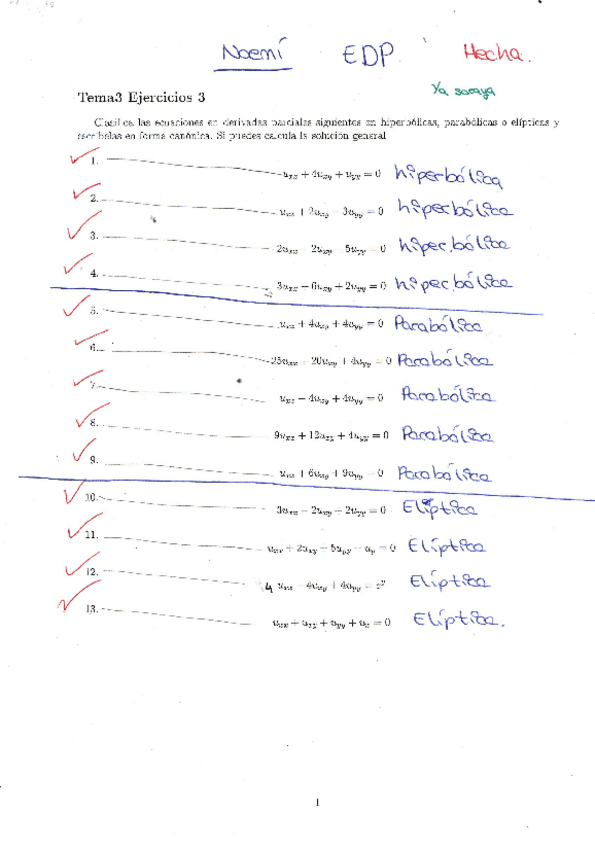 Noemí EDP Hecha.
Ya soraya
Tema3 Ejercicios 3
Clasifica las ecuaciones en derivadas parciales siguientes en hiperbólicas, parabólicas o elípticas y
escribelas en forma canónica. Si puedes calcula la solución general
1.
uxx + 4uxy + uyy = 0 hiperbólica
2.
uxx + 2uxy − 3uyy = 0 hiperbólica
3.
2uxx − 2uxy − 5uyy = 0 hiperbólica
4.
3uxx − 6uxy + 2uyy = 0 hiperbólica
5.
uxx + 4uxy + 4uyy = 0 Parabólica
6.
25uxx − 20uxy + 4uyy = 0 Parabólica
7.
uxx − 4uxy + 4uyy = 0 Parabólica
8.
9uxx + 12uxy + 4uyy = 0 Parabólica
9.
uxx + 6uxy + 9uyy = 0 Parabólica
10.
3uxx − 2uxy + 2uyy = 0 Elíptica
11.
uxx + 2uxy + 5uyy − uy = 0 Elíptica
12.
4 uxx − 4uxy + 4uyy = Elíptica
13.
uxx + uxy + uyy + ux = 0 Elíptica.
1